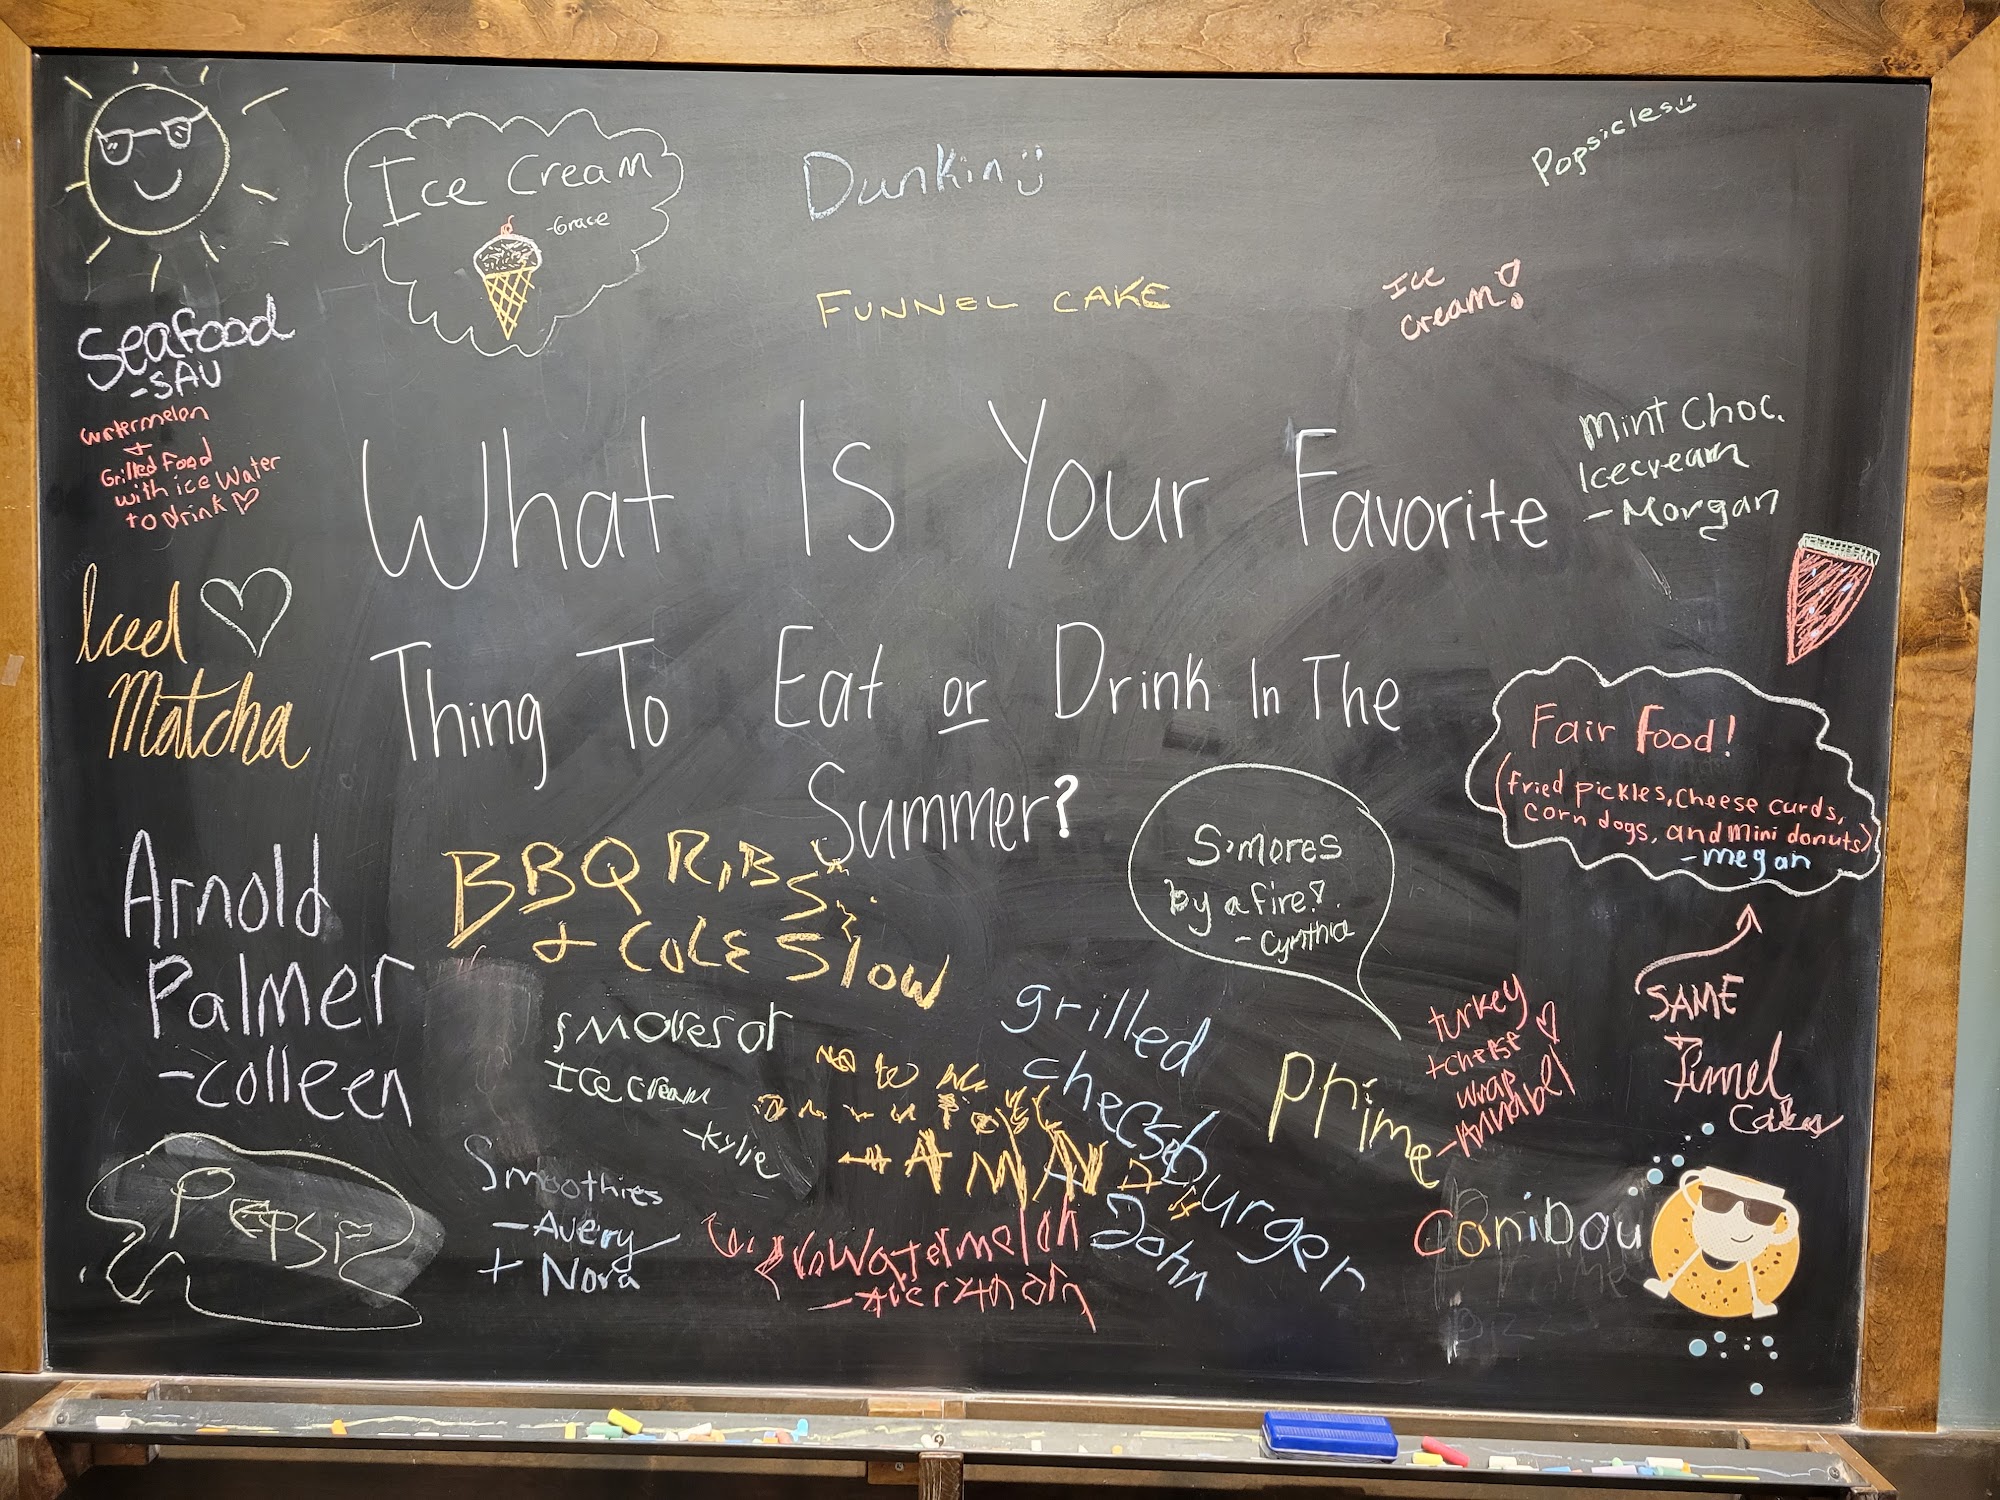 Ice Cream
-Grace
Dunkin
Popsicles
FUNNEL CAKE
Ice
Cream!
Seafood
-SAU
watermelon
+
Grilled Food
with ice Water
to drink
What Is Your Favorite
Thing To Eat or Drink In The
Summer?
Mint Choc.
Icecream
-Morgan
Iced
Matcha
Fair Food!
(fried pickles, cheese curds,
corn dogs, and mini donuts)
-megan
SAME
+
Funnel
Cakes
Arnold
Palmer
-colleen
BBQ RIBS
+ COLE Slow
S'mores
by a fire!
-Cynthia
smores or
Ice cream
-Kylie
grilled
cheese
burger
John
Prime
turkey
+cheese
wrap
-Annabel
Pepsi
Smoothies
-Avery
+ Nora
Watermelon
Canibou